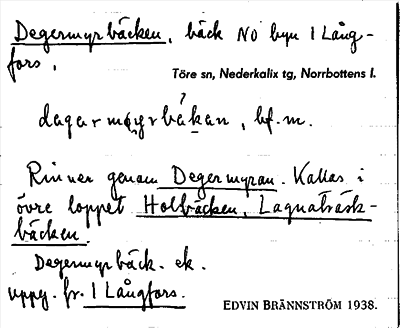 Degermyrbäcken, bäck NO byn 1 Lång-
fors.
Töre sn, Nederkalix tg, Norrbottens l.
dagarmyrbäkan, bf. m.
Rinner genom Degermyran. Kallas i
övre loppet Holbäcken, Lagnaträsk-
bäcken.
Degermyrbäck. ek.
uppg. fr. 1 Långfors.
EDVIN BRÄNNSTRÖM 1938.